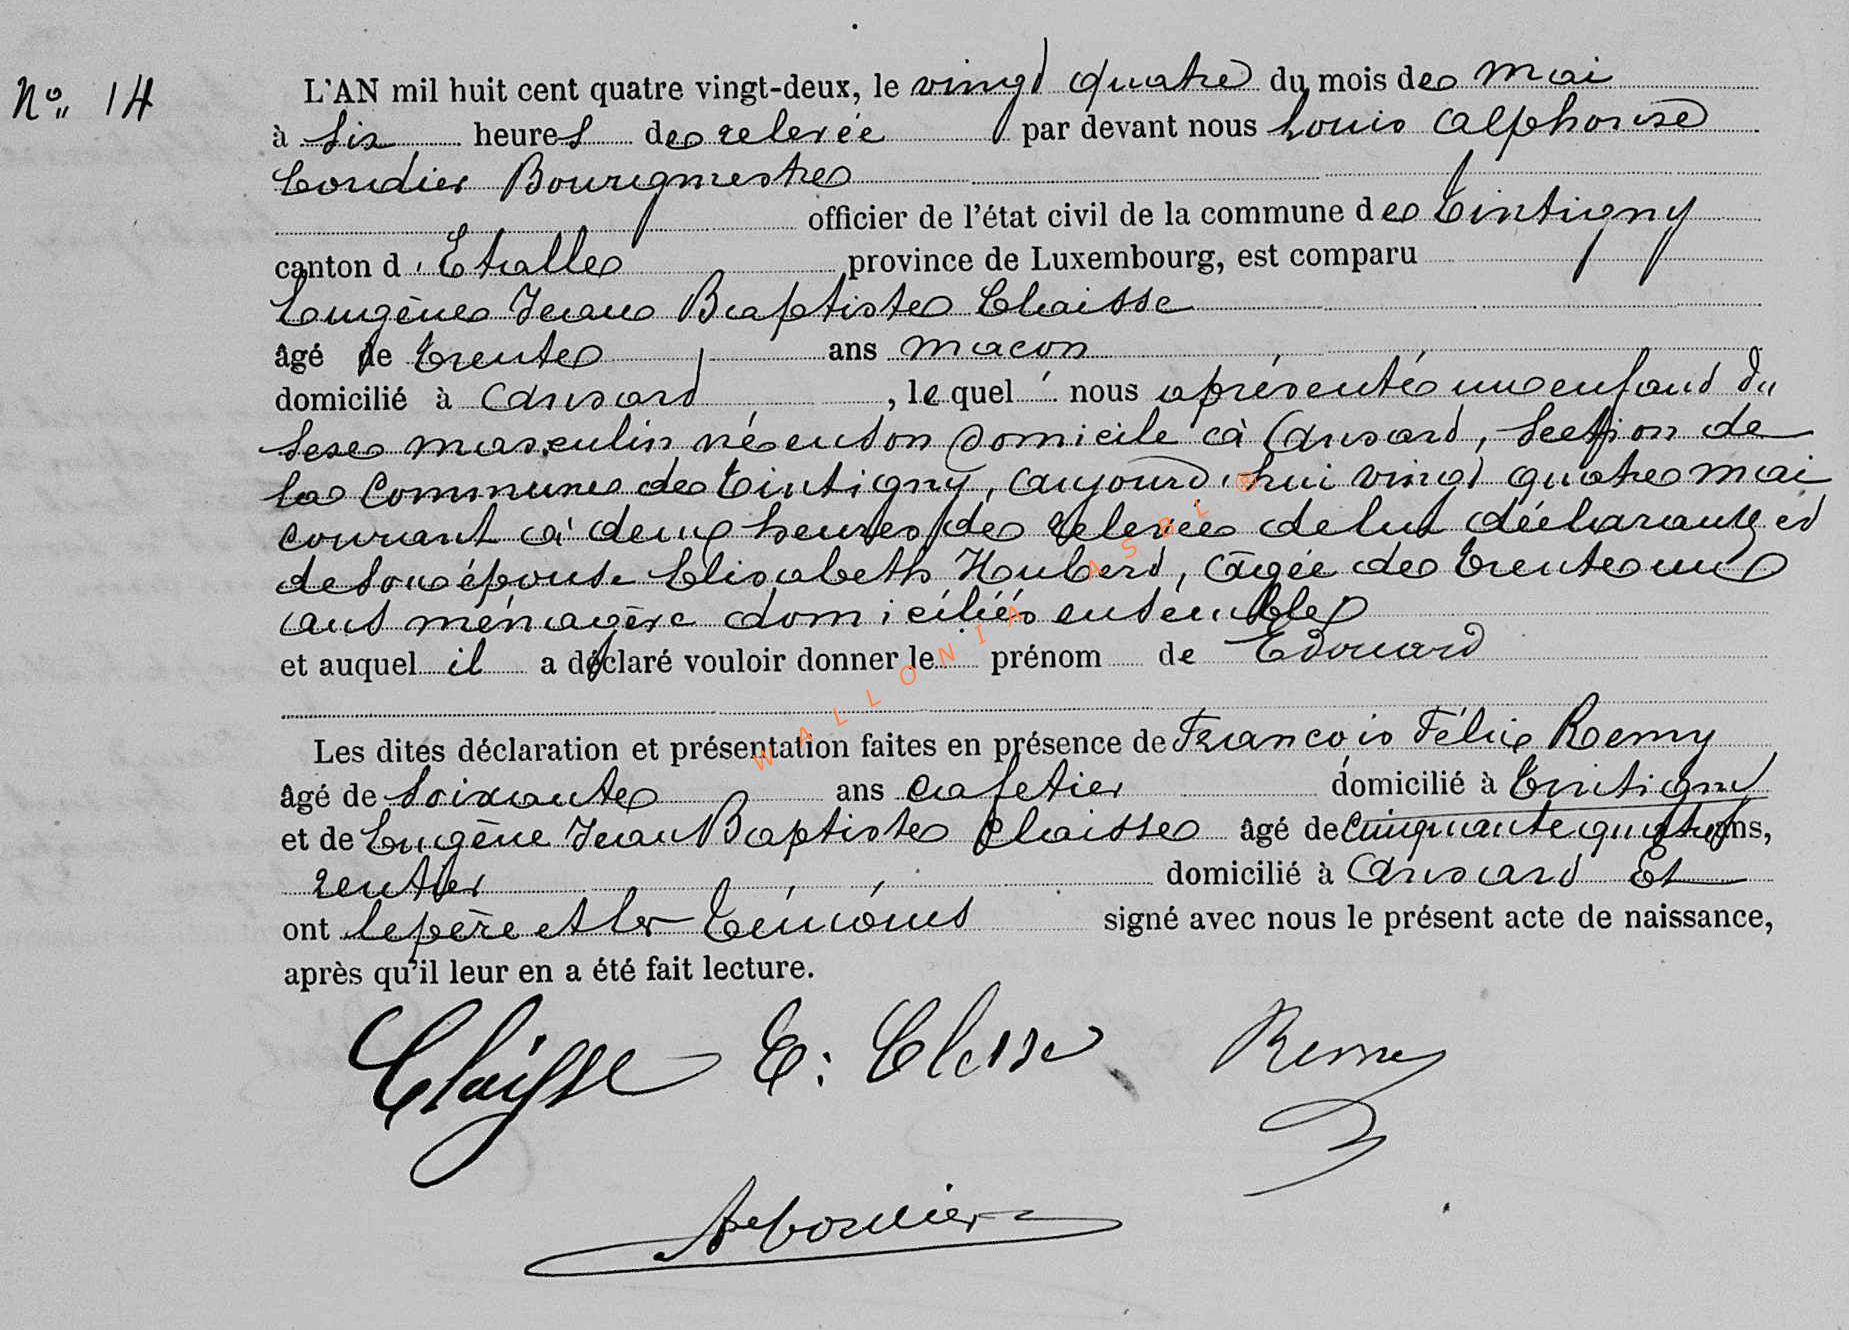 N° 14
L'AN mil huit cent quatre vingt-deux, le vingt quatre du mois de mai
à six heures de relevée par devant nous Louis Alphonse
Cordier Bourgmestre
officier de l'état civil de la commune de Tintigny
canton d'Etalle province de Luxembourg, est comparu
Eugène Jean Baptiste Claisse
âgé de trente ans macon
domicilié à Ansard, lequel nous a présenté un enfant du
sexe masculin né en son domicile à Ansard, section de
la commune de Tintigny, aujourd'hui vingt quatre mai
courant à deux heures de relevée de lui déclarant et
de son épouse Elisabeth Hubert, âgée de trente un
ans ménagère domiciliés ensemble
et auquel il a déclaré vouloir donner le prénom de Edouard
Les dites déclaration et présentation faites en présence de Francois Félix Remy
âgé de soixante ans cafetier domicilié à Tintigny
et de Eugène Jean Baptiste Claisse âgé de cinquante quatre ans,
rentier domicilié à Ansard Et
ont le père et les témoins signé avec nous le présent acte de naissance,
après qu'il leur en a été fait lecture.
Claisse E: Claisse Remy
A Cordier
WALLONIA ASBL ©